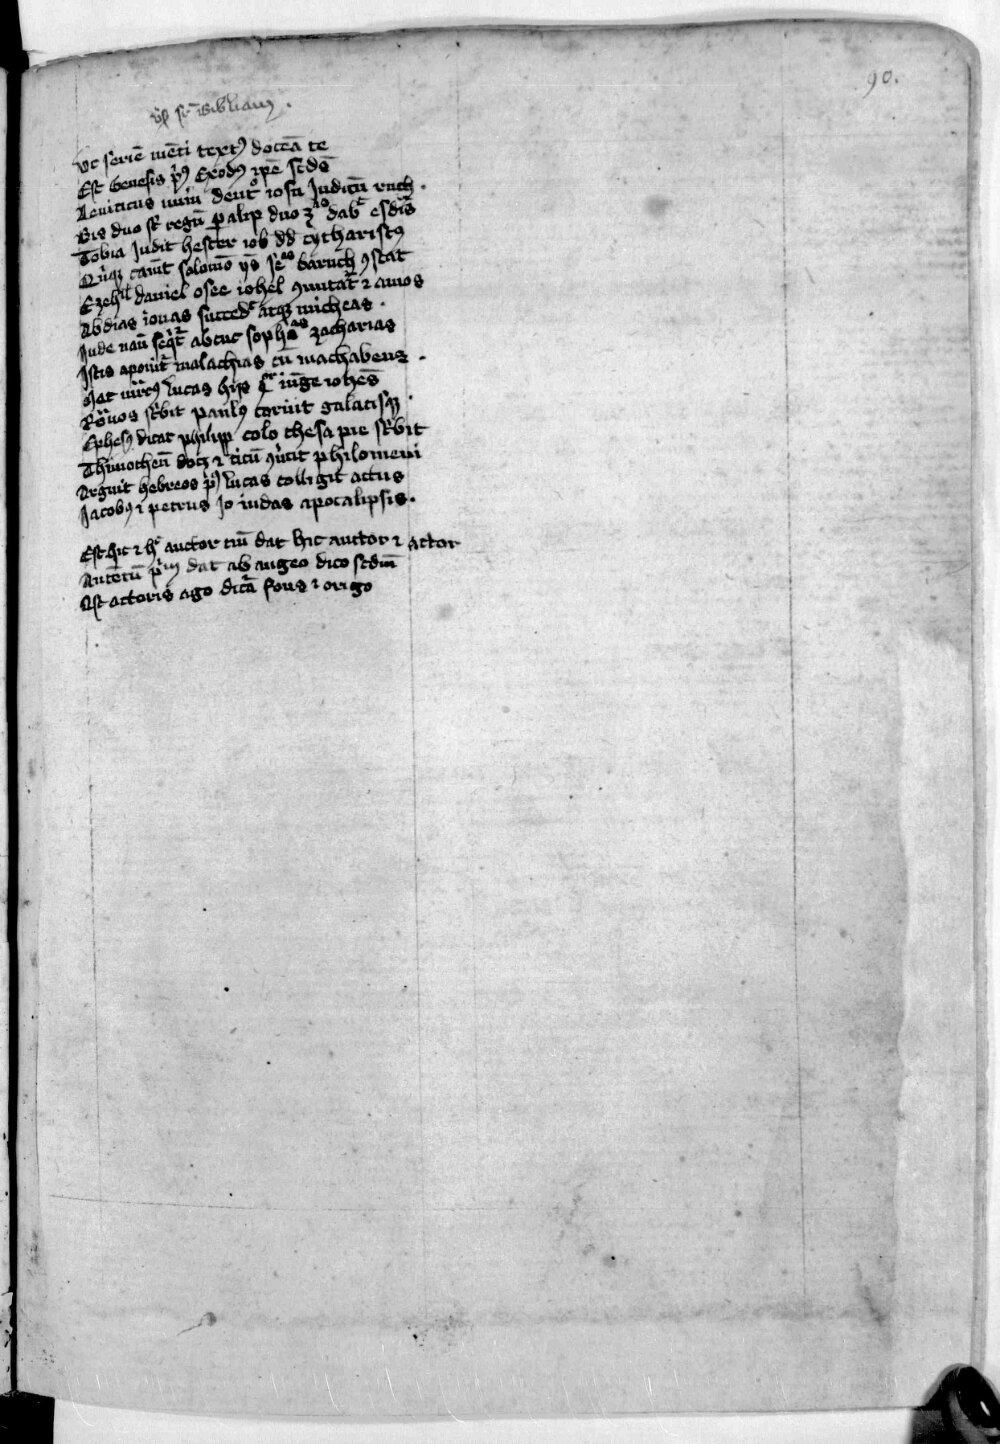 90.
sup Bibliam.
Vt seriē mēti textꝰ doceā te
Est Genesis pͥꝰ Exodꝰ ꝛpē scdꝰ
Leviticus nūm deutᵒ iosu Judicū ruth.
Bis duo st regū paralip duo dabᵗ esdrās
Tobia Judit hester iob dd cytharistꝰ
canit solomō ys baruch ꝯstat
Ezehˡ daniel osee iohel ꝯmitat ⁊ amos
Abdias ionas succedᵗ atqꝫ micheas.
Inde naū seqͥt abcuc soph zacharias
Istis aponit malachias cū machabeus.
Mat mrcꝰ lucas hijs iūge iohēs
Romāos scͥbit paulꝰ corint galatisqꝫ.
Ephesꝰ dicat philipp colo thesa pie scͥbit
Thimotheū docꝫ ⁊ titū ꝯuēit philomeni
Arguit hebreos pꝰ lucas colligit actus
Jacobꝰ ⁊ petrus Jo iudas apocalipsis.
Est hic ⁊ hᵉ auctor tm̄ dat hic auctor ⁊ actor
Autētū pͥm dat ab augeo dico scdm̄
Est actoris ago dicā fons ⁊ origo